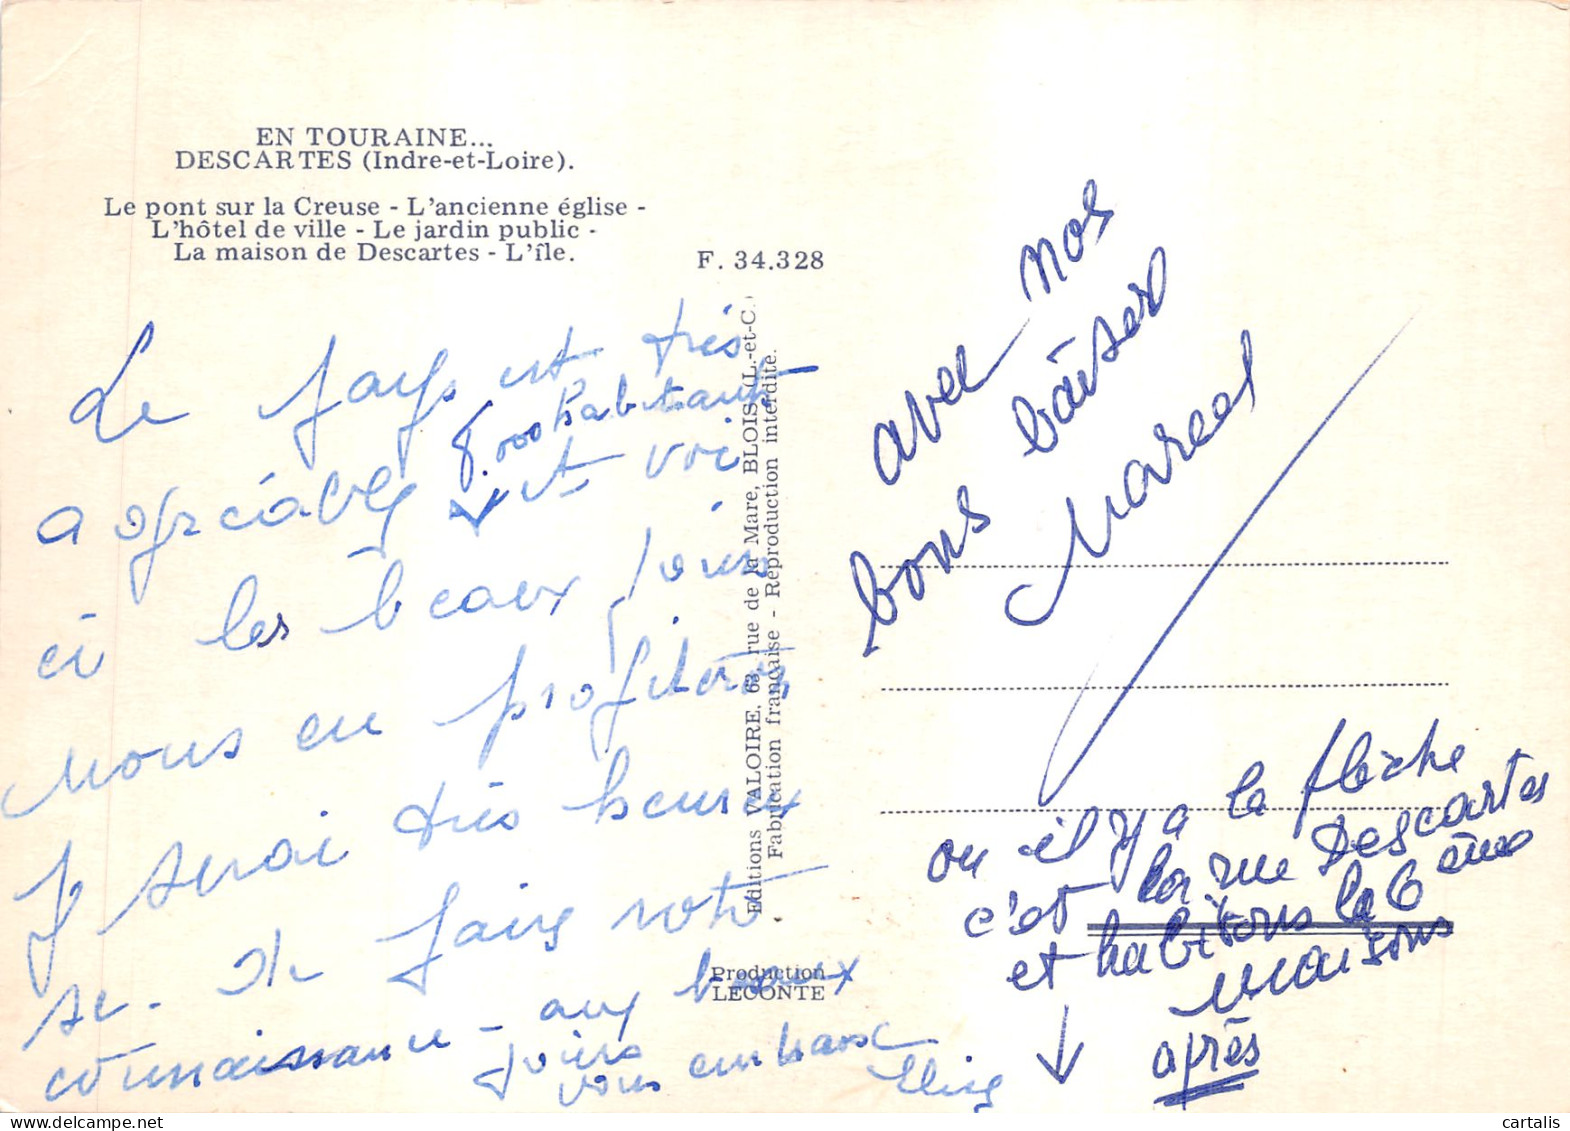 EN TOURAINE...
DESCARTES (Indre-et-Loire).
Le pont sur la Creuse - L'ancienne église -
L'hôtel de ville - Le jardin public -
La maison de Descartes - L'île.
F. 34.328
Le pays est très
agréable 8.000 habitants et voi
ci les beaux jours
nous en profiterons
Je serai très heureu
se de faire votre
connaissance - aux beaux
jours
vous embrasse
Editions VALOIRE, 63, rue de la Mare, BLOIS (L.-et-C.)
Fabrication française - Reproduction interdite.
Production
LECONTE
avec nos
bons baisers
Marcel
ou il y a la flèche
c'est la rue Descartes
et habitons la 6 ème
maisons
après
cartalis